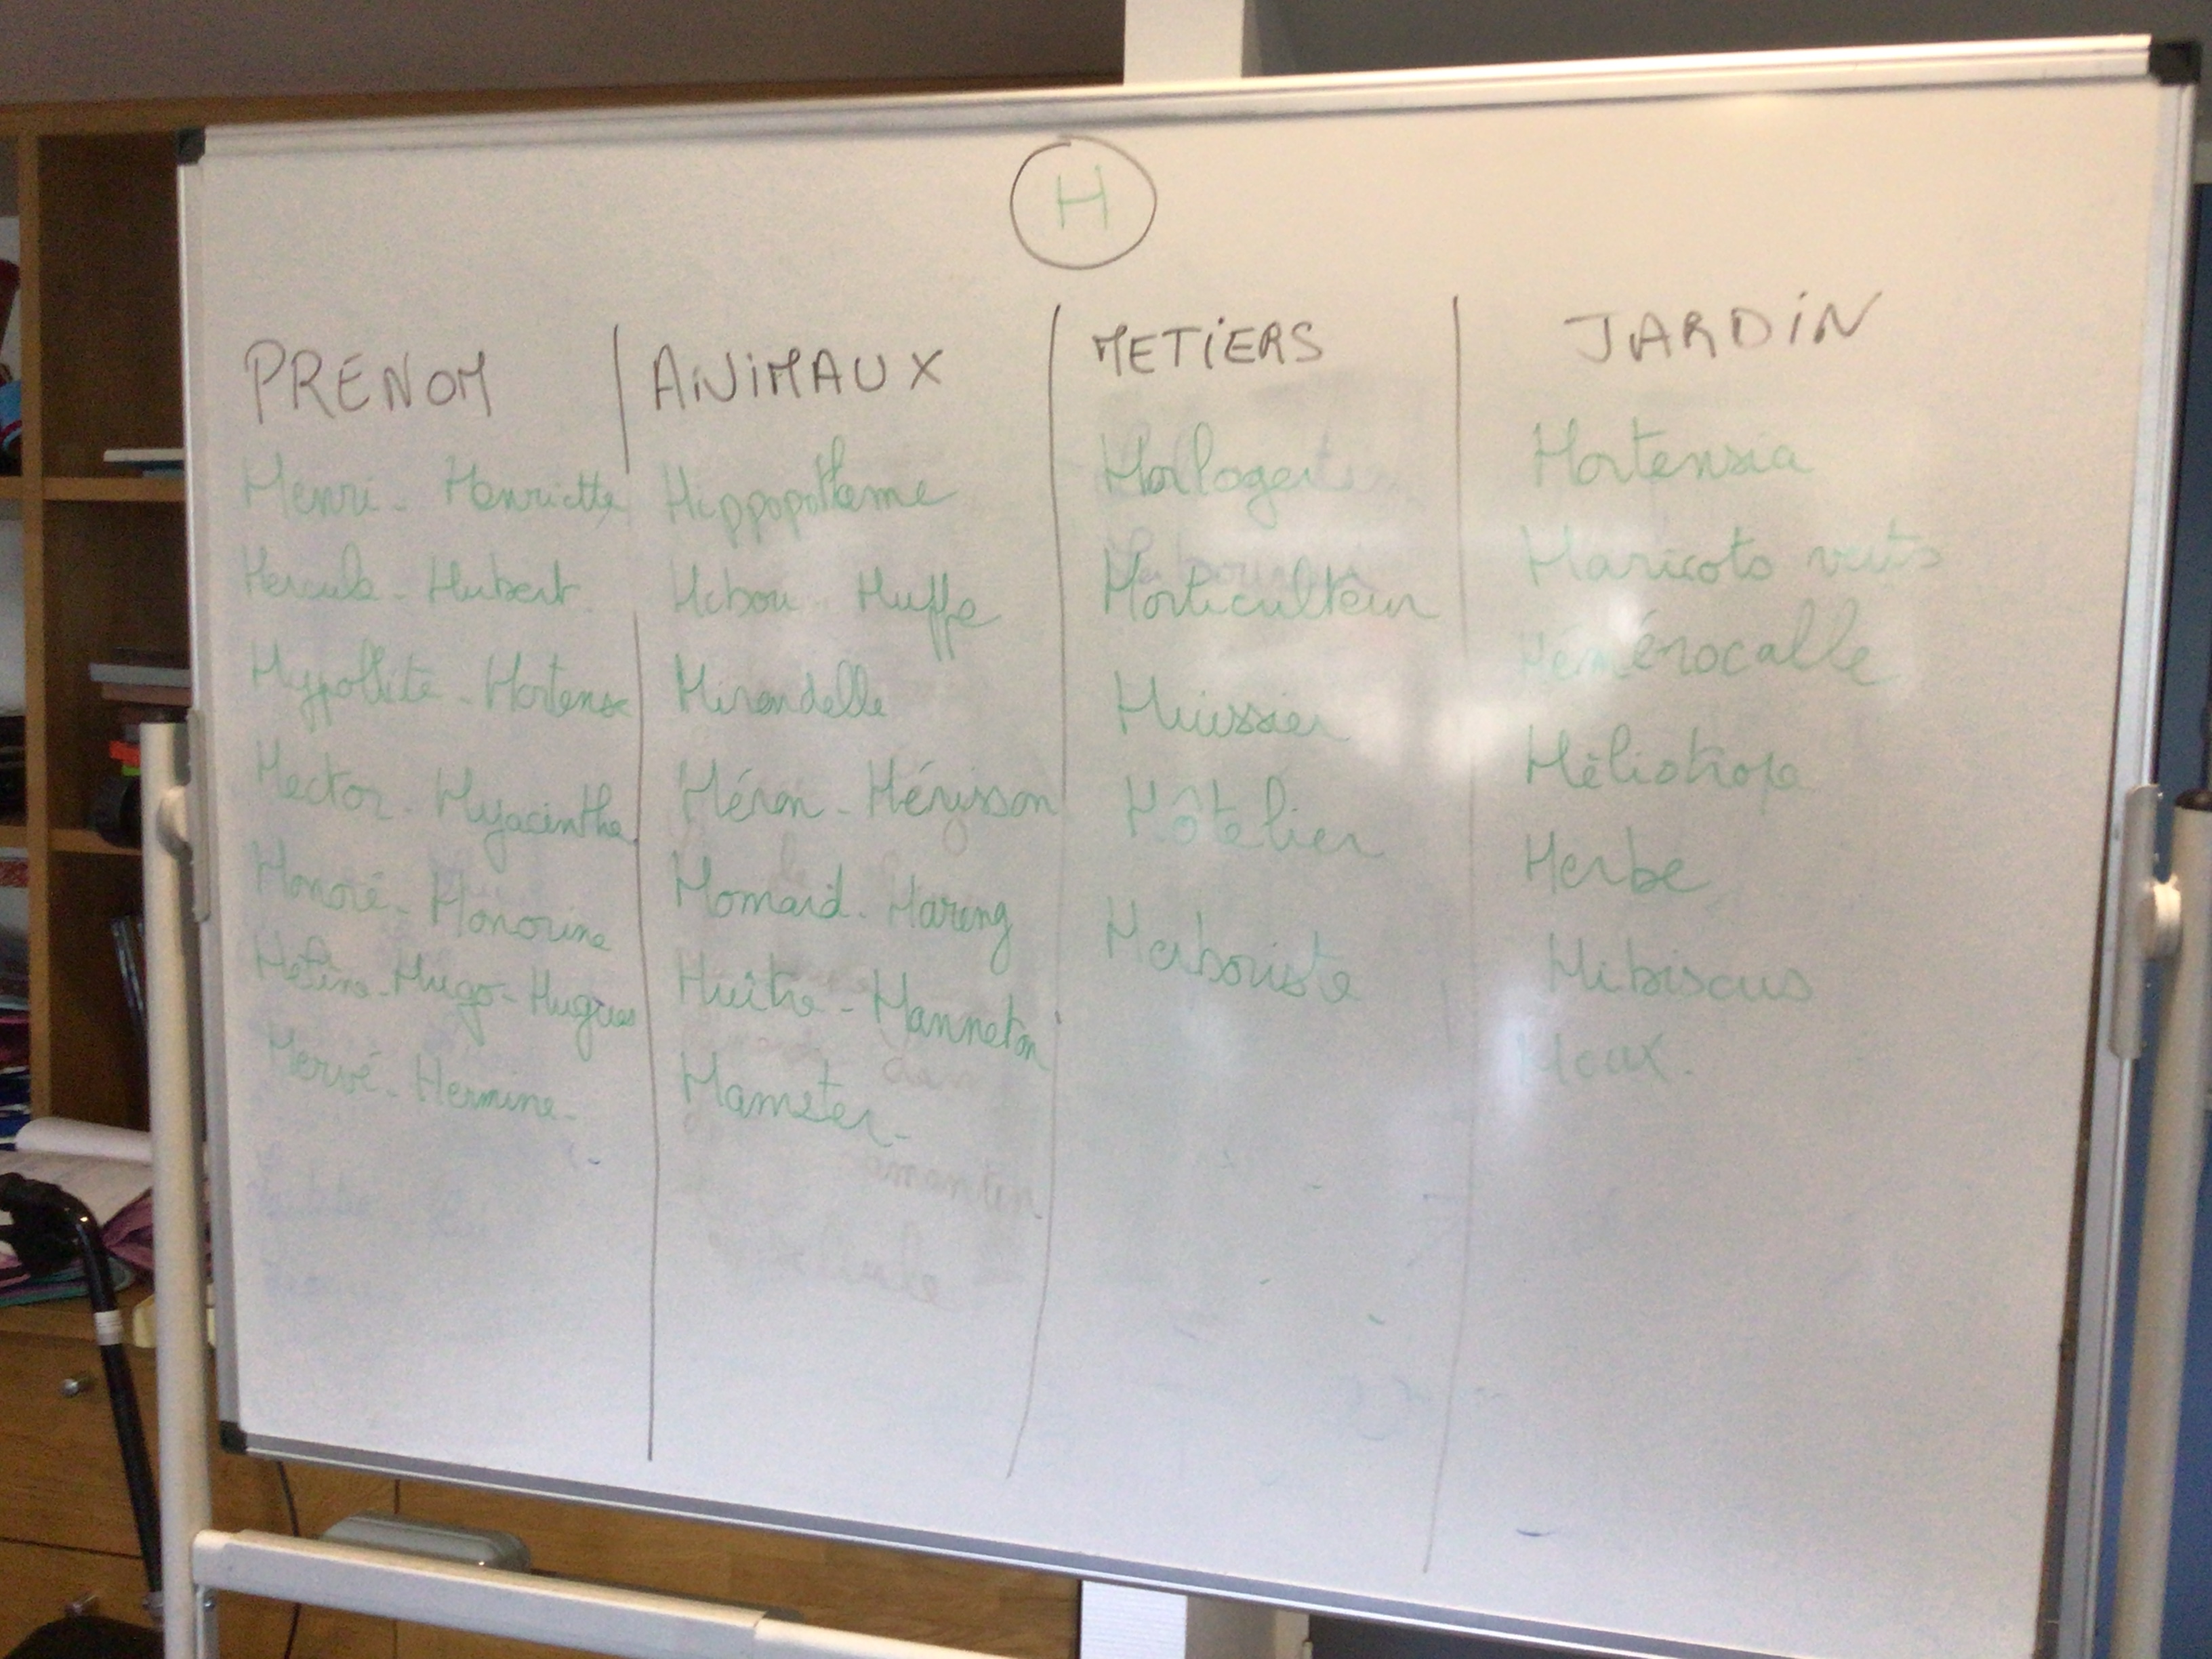 H
PRENOM
Henri - Henriette
Hercule - Hubert.
Hyppollite - Hortense
Hector - Hyacinthe
Honoré - Honorine
Hélène - Hugo - Hugues
Hervé - Hermine -
ANiMAUX
Hippopotame
Hibou - Huppe
Hirondelle
Héron - Hérisson
Homard - Hareng
Huître - Hanneton
Hamster -
METiERS
Horloger
Horticulteur
Huissier
Hôtelier
Herboriste
JARDiN
Hortensia
Haricots verts
Hémérocalle
Héliotrope
Herbe
Hibiscus
Houx.